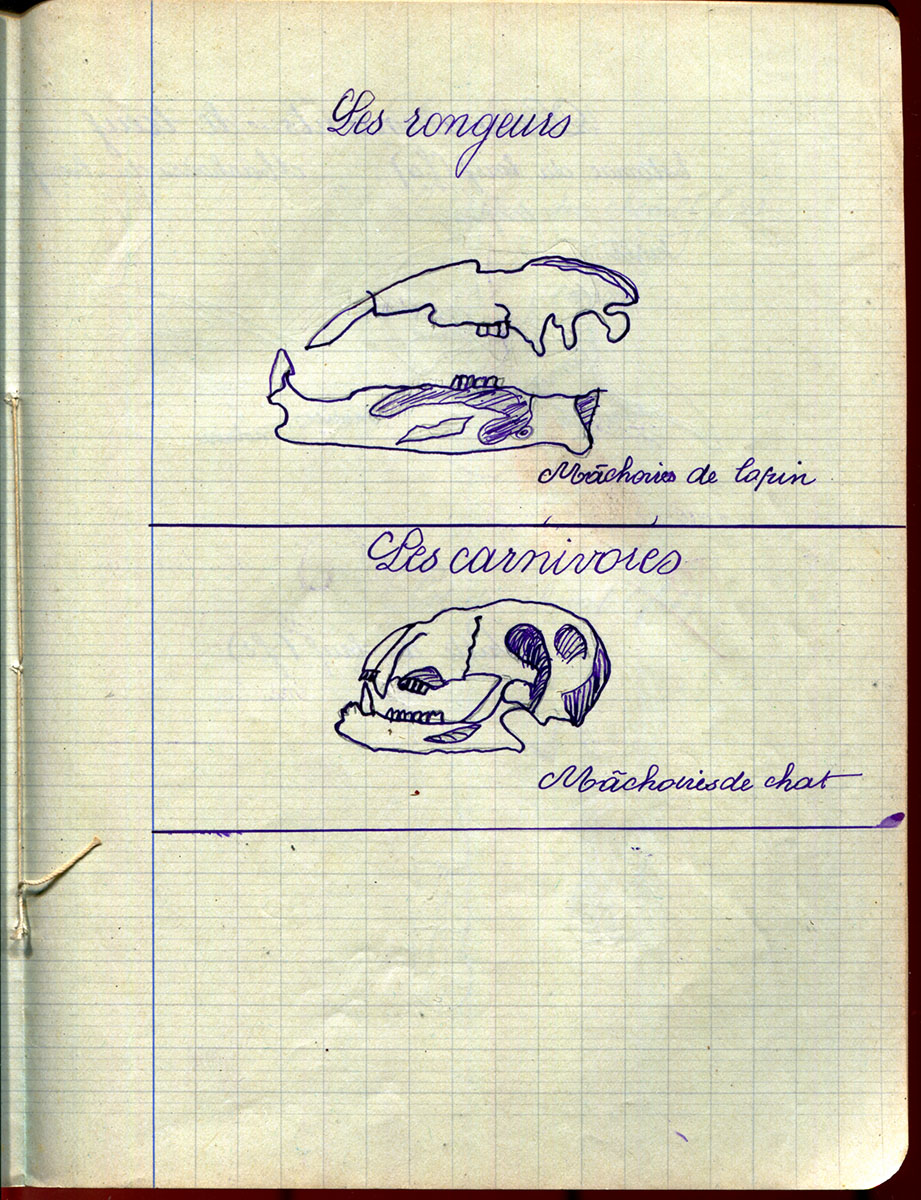 Les rongeurs
Mâchoires de lapin
Les carnivores
Mâchoires de chat